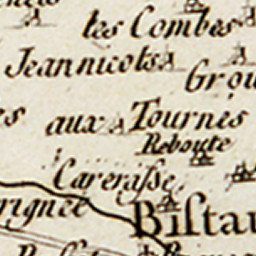 les Combes
Jeannicots
Grou
es
aux Tournes
Reboute
Careraſse
rignee
Biſtau